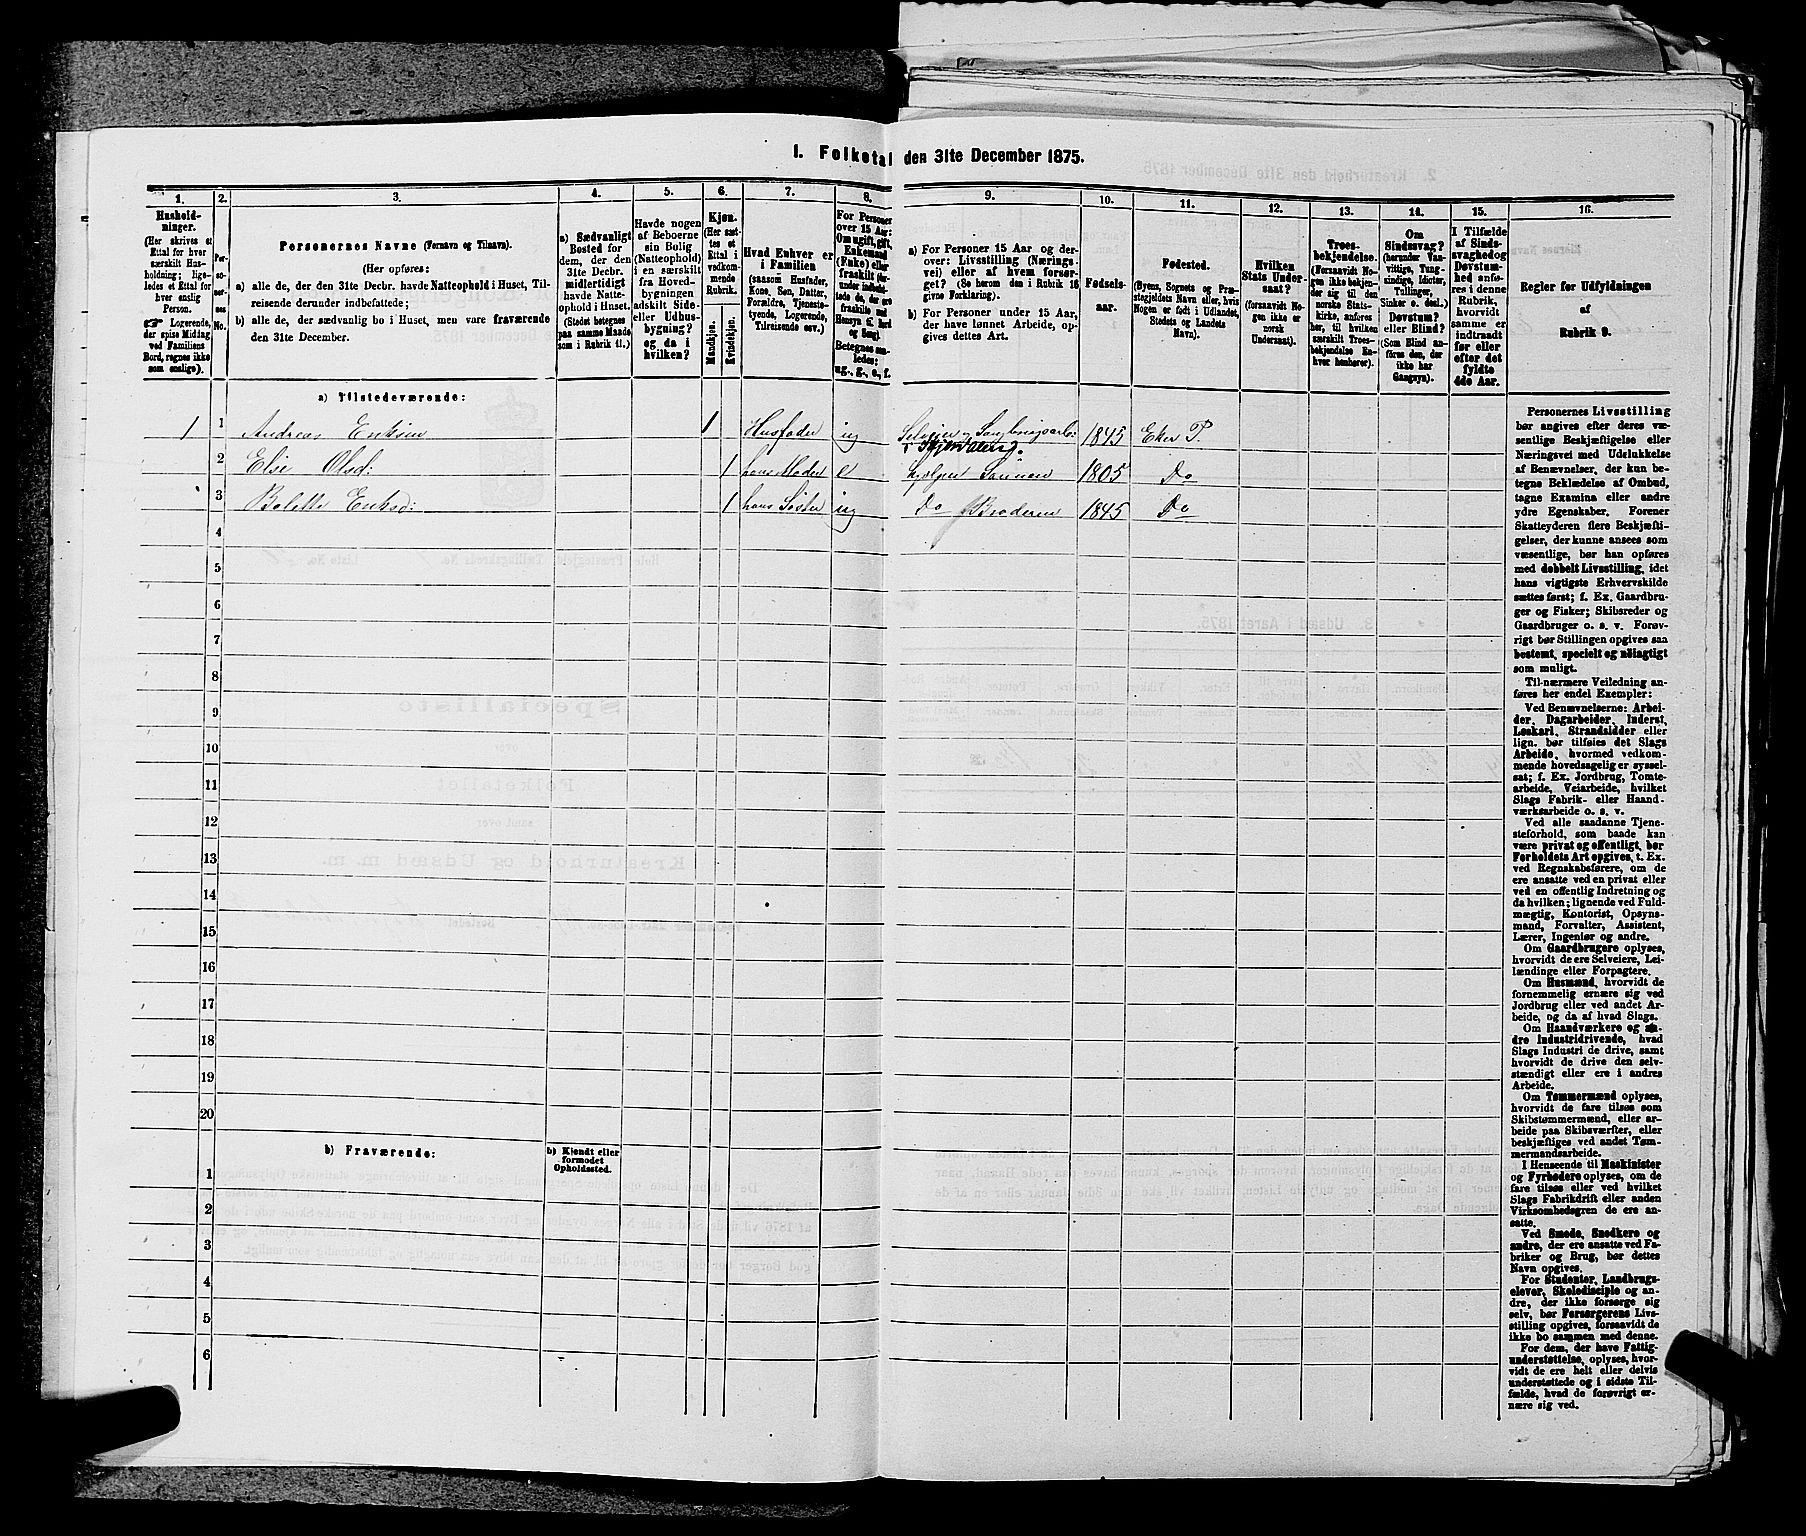 1. Folketal den 31te December 1875.
1.
Hushold-
ninger.
(Her skrives et
Ettal for hver
særskilt Hus-
holdning; lige-
ledes et Ettal for
hver enslig
Person.
Logerende,
der spise Middag
ved Familiens
Bord, regnes ikke
som enslige).
2.
Per-
so-
ner-
nes
No.
3.
Personernes Navne (Fornavn og Tilnavn).
(Her opføres:
a) alle de, der den 31te Decbr. havde Natteophold i Huset, Til-
reisende derunder indbefattede;
b) alle de, der sædvanlig bo i Huset, men vare fraværende
den 31te December.
4.
a) Sædvanligt
Bosted for
dem, der den
31te Decbr.
midlertidigt
havde Natte-
ophold i Huset.
(Stedet betegnes
paa samme Maade
som i Rubrik 11.)
5.
Havde nogen
af Beboerne
sin Bolig
(Natteophold)
i en særskilt
fra Hoved-
bygningen
adskilt Side-
eller Udhus-
bygning?
og da i
hvilken?
6.
Kjøn.
(Her sæt-
tes et
Ettal i
vedkom-
mende
Rubrik.
Mandkjøn.
Kvindekjøn.
7.
Hvad Enhver er
i Familien
(saasom Husfader,
Kone, Søn, Datter,
Forældre, Tjeneste-
tyende, Logerende,
Tilreisende osv.)
8.
For Personer
over 15 Aar:
Om ugift, gift,
Enkemand
(Enke) eller
fraskilt
ug., g., e., f.
9.
a) For Personer 15 Aar og der-
over: Livsstilling (Nærings-
vei) eller af hvem forsør-
get? (Se herom den i Rubrik 16
givne Forklaring).
b) For Personer under 15 Aar,
der have lønnet Arbeide, op-
gives dettes Art.
10.
Fødsels-
aar.
11.
Fødested.
(Byens, Sognets og Præ-
stegjeldets Navn eller, hvis
Nogen er født i Udlandet,
Stedets og Landets
Navn).
12.
Hvilken
Stats Under-
saat?
(forsaavidt No-
gen ikke er
norsk
Undersaat).
13.
Troes-
bekjendelse.
(Forsaavidt No-
gen ikke bekjen-
der sig til den
norske Stats-
kirke, anføres
her, til hvilken
særskilt Troes-
bekjendelse En-
hver henhører).
14.
Om
Sindssvag?
(herunder Van-
vittige, Tung-
sindige, Idioter,
Tullinger,
Sinker o. desl.)
Døvstum?
eller Blind?
(Som Blind an-
føres den, der
ikke har
Gangsyn).
15.
I Tilfælde
af Sinds-
svaghed og
Døvstum-
hed anfø-
res i denne
Rubrik,
hvorvidt
samme er
indtraadt
før eller
efter det
fyldte
4de Aar.
16.
Regler for Udfyldningen
af
Rubrik 9.
a) Tilstedeværende:
1 1 Andreas Eriksen 1 Husfader ug Selveier og Sagbrugsarb: 1845 Eker P.
2 Else Olsd: 1 hans Moder e hjelper Sønnen 1805 Do
3 Bolette Eriksd: 1 hans Søster ug Do Broderen 1845 Do
4
5
6
7
8
9
10
11
12
13
14
15
16
17
18
19
20
b) Fraværende:
b) Kjendt eller
formodet
Opholdssted.
1
2
3
4
5
6
Personernes Livsstilling
bør angives efter deres væ-
sentlige Beskjæftigelse eller
Næringsvei med Udelukkelse
af Benævnelser, der kun be-
tegne Beklædelse af Ombud,
tagne Examina eller andre
ydre Egenskaber. Forener
Skatteyderen flere Beskjæfti-
gelser, der kunne ansees som
væsentlige, bør han opføres
med dobbelt Livsstilling, idet
hans vigtigste Erhvervskilde
sættes først; f. Ex. Gaardbru-
ger og Fisker; Skibsreder og
Gaardbruger o. s. v. Forøv-
rigt bør Stillingen opgives saa
bestemt, specielt og nøiagtigt
som muligt.
Til nærmere Veiledning an-
føres her endel Exempler:
Ved Benævnelserne: Arbei-
der, Dagarbeider, Inderst,
Løskarl, Strandsidder eller
lign. bør tilføies det Slags
Arbeide, hvormed vedkom-
mende hovedsagelig er syssel-
sat; f. Ex. Jordbrug, Tomte-
arbeide, Veiarbeide, hvilket
Slags Fabrik- eller Haand-
værksarbeide o. s. v.
Ved alle saadanne Tjene-
steforhold, som baade kan
være privat og offentligt, bør
Forholdets Art opgives, t. Ex.
ved Regnskabsførere, om de
ere ansatte ved en privat eller
ved en offentlig Indretning og
da hvilken; lignende ved Fuld-
mægtig, Kontorist, Opsyns-
mand, Forvalter, Assistent,
Lærer, Ingeniør og andre.
Om Gaardbrugere oplyses,
hvorvidt de ere Selveiere, Lei-
lændinge eller Forpagtere.
Om Husmænd, hvorvidt de
fornemmelig ernære sig ved
Jordbrug eller ved andet Ar-
beide, og da af hvad Slags.
Om Haandværkere og an-
dre Industridrivende, hvad
Slags Industri de drive, samt
hvorvidt de drive den selv-
stændigt eller ere i andres
Arbeide.
Om Tømmermænd oplyses,
hvorvidt de fare tilsøs som
Skibstømmermænd, eller ar-
beide paa Skibsværfter, eller
beskjæftiges ved andet Tøm-
mermandsarbeide.
I Henseende til Maskinister
og Fyrbødere oplyses, om de
fare tilsøs eller ved hvilket
Slags Fabrikdrift eller anden
Virksomhedsgren de ere an-
satte.
Ved Smede, Snedkere og
andre, der ere ansatte ved Fa-
briker og Brug, bør dettes
Navn opgives.
For Studenter, Landbrugs-
elever, Skoledisciple og an-
dre, der ikke forsørge sig
selv, bør Forsørgerens Livs-
stilling opgives, forsaavidt de
ikke bo sammen med denne.
For dem, der have Fattig-
understøttelse, oplyses, hvor-
vidt de ere helt eller delvis
understøttede og i sidste Til-
fælde, hvad de forøvrigt er-
nære sig ved.